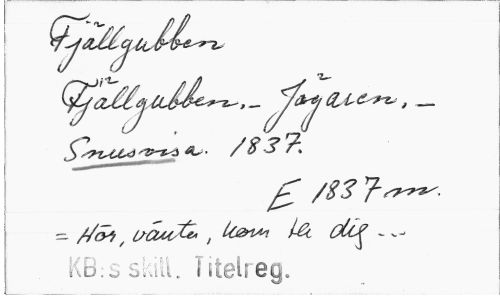 Fjällgubben
Fjällgubben. – Jägaren. –
Snusvisa. 1837.
E 1837 m.
= Hör, vänta, kom te dig ...
KB:s skill. Titelreg.